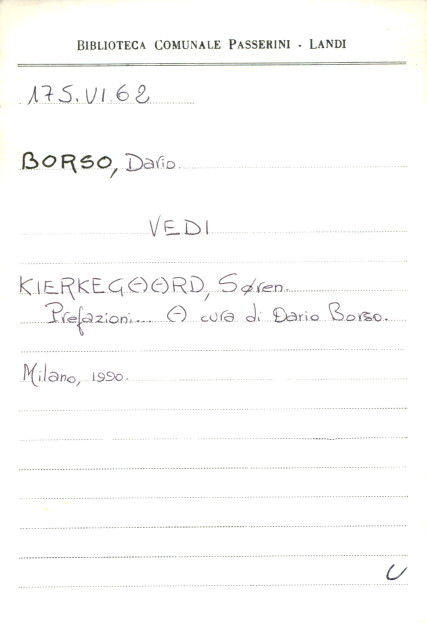 BIBLIOTECA COMUNALE PASSERINI - LANDI
175.VI.62
BORSO, Dario.
VEDI
KIERKEGAARD, Søren.
Prefazioni.... A cura di Dario Borso.
Milano, 1990.
U